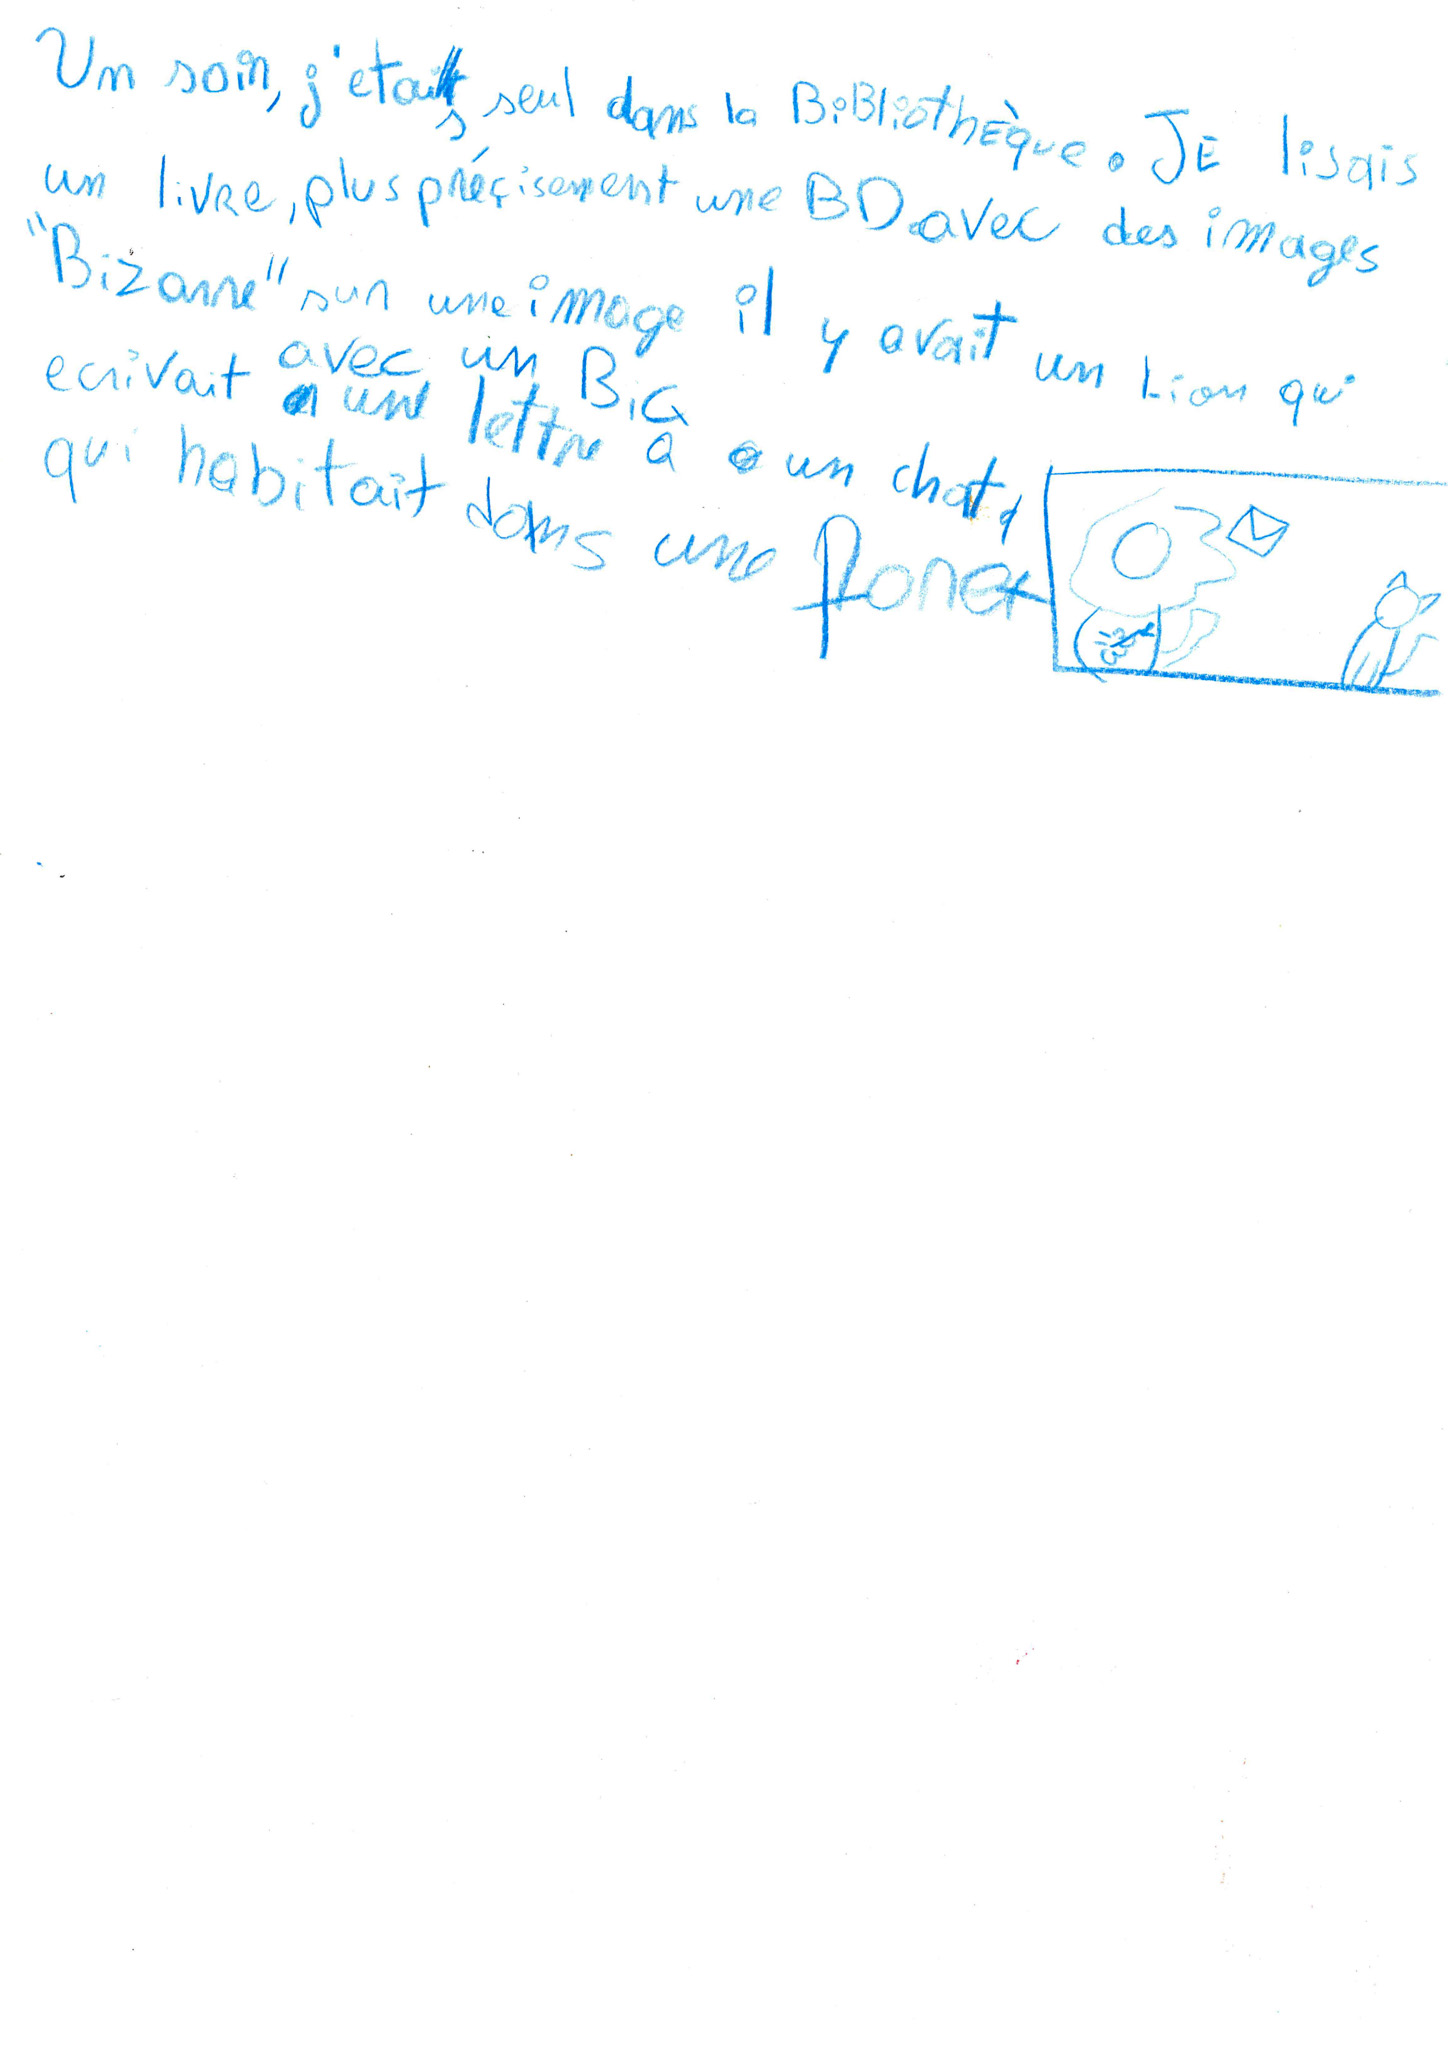 Un soir, j'etais seul dans la BiBliothèque. JE lisais
un livre, plus préçisement une BD avec des images
"Bizarre" sur une image il y avait un Lion qui
ecrivait avec un BiC
une lettre à un chat,
qui habitait dans une foret